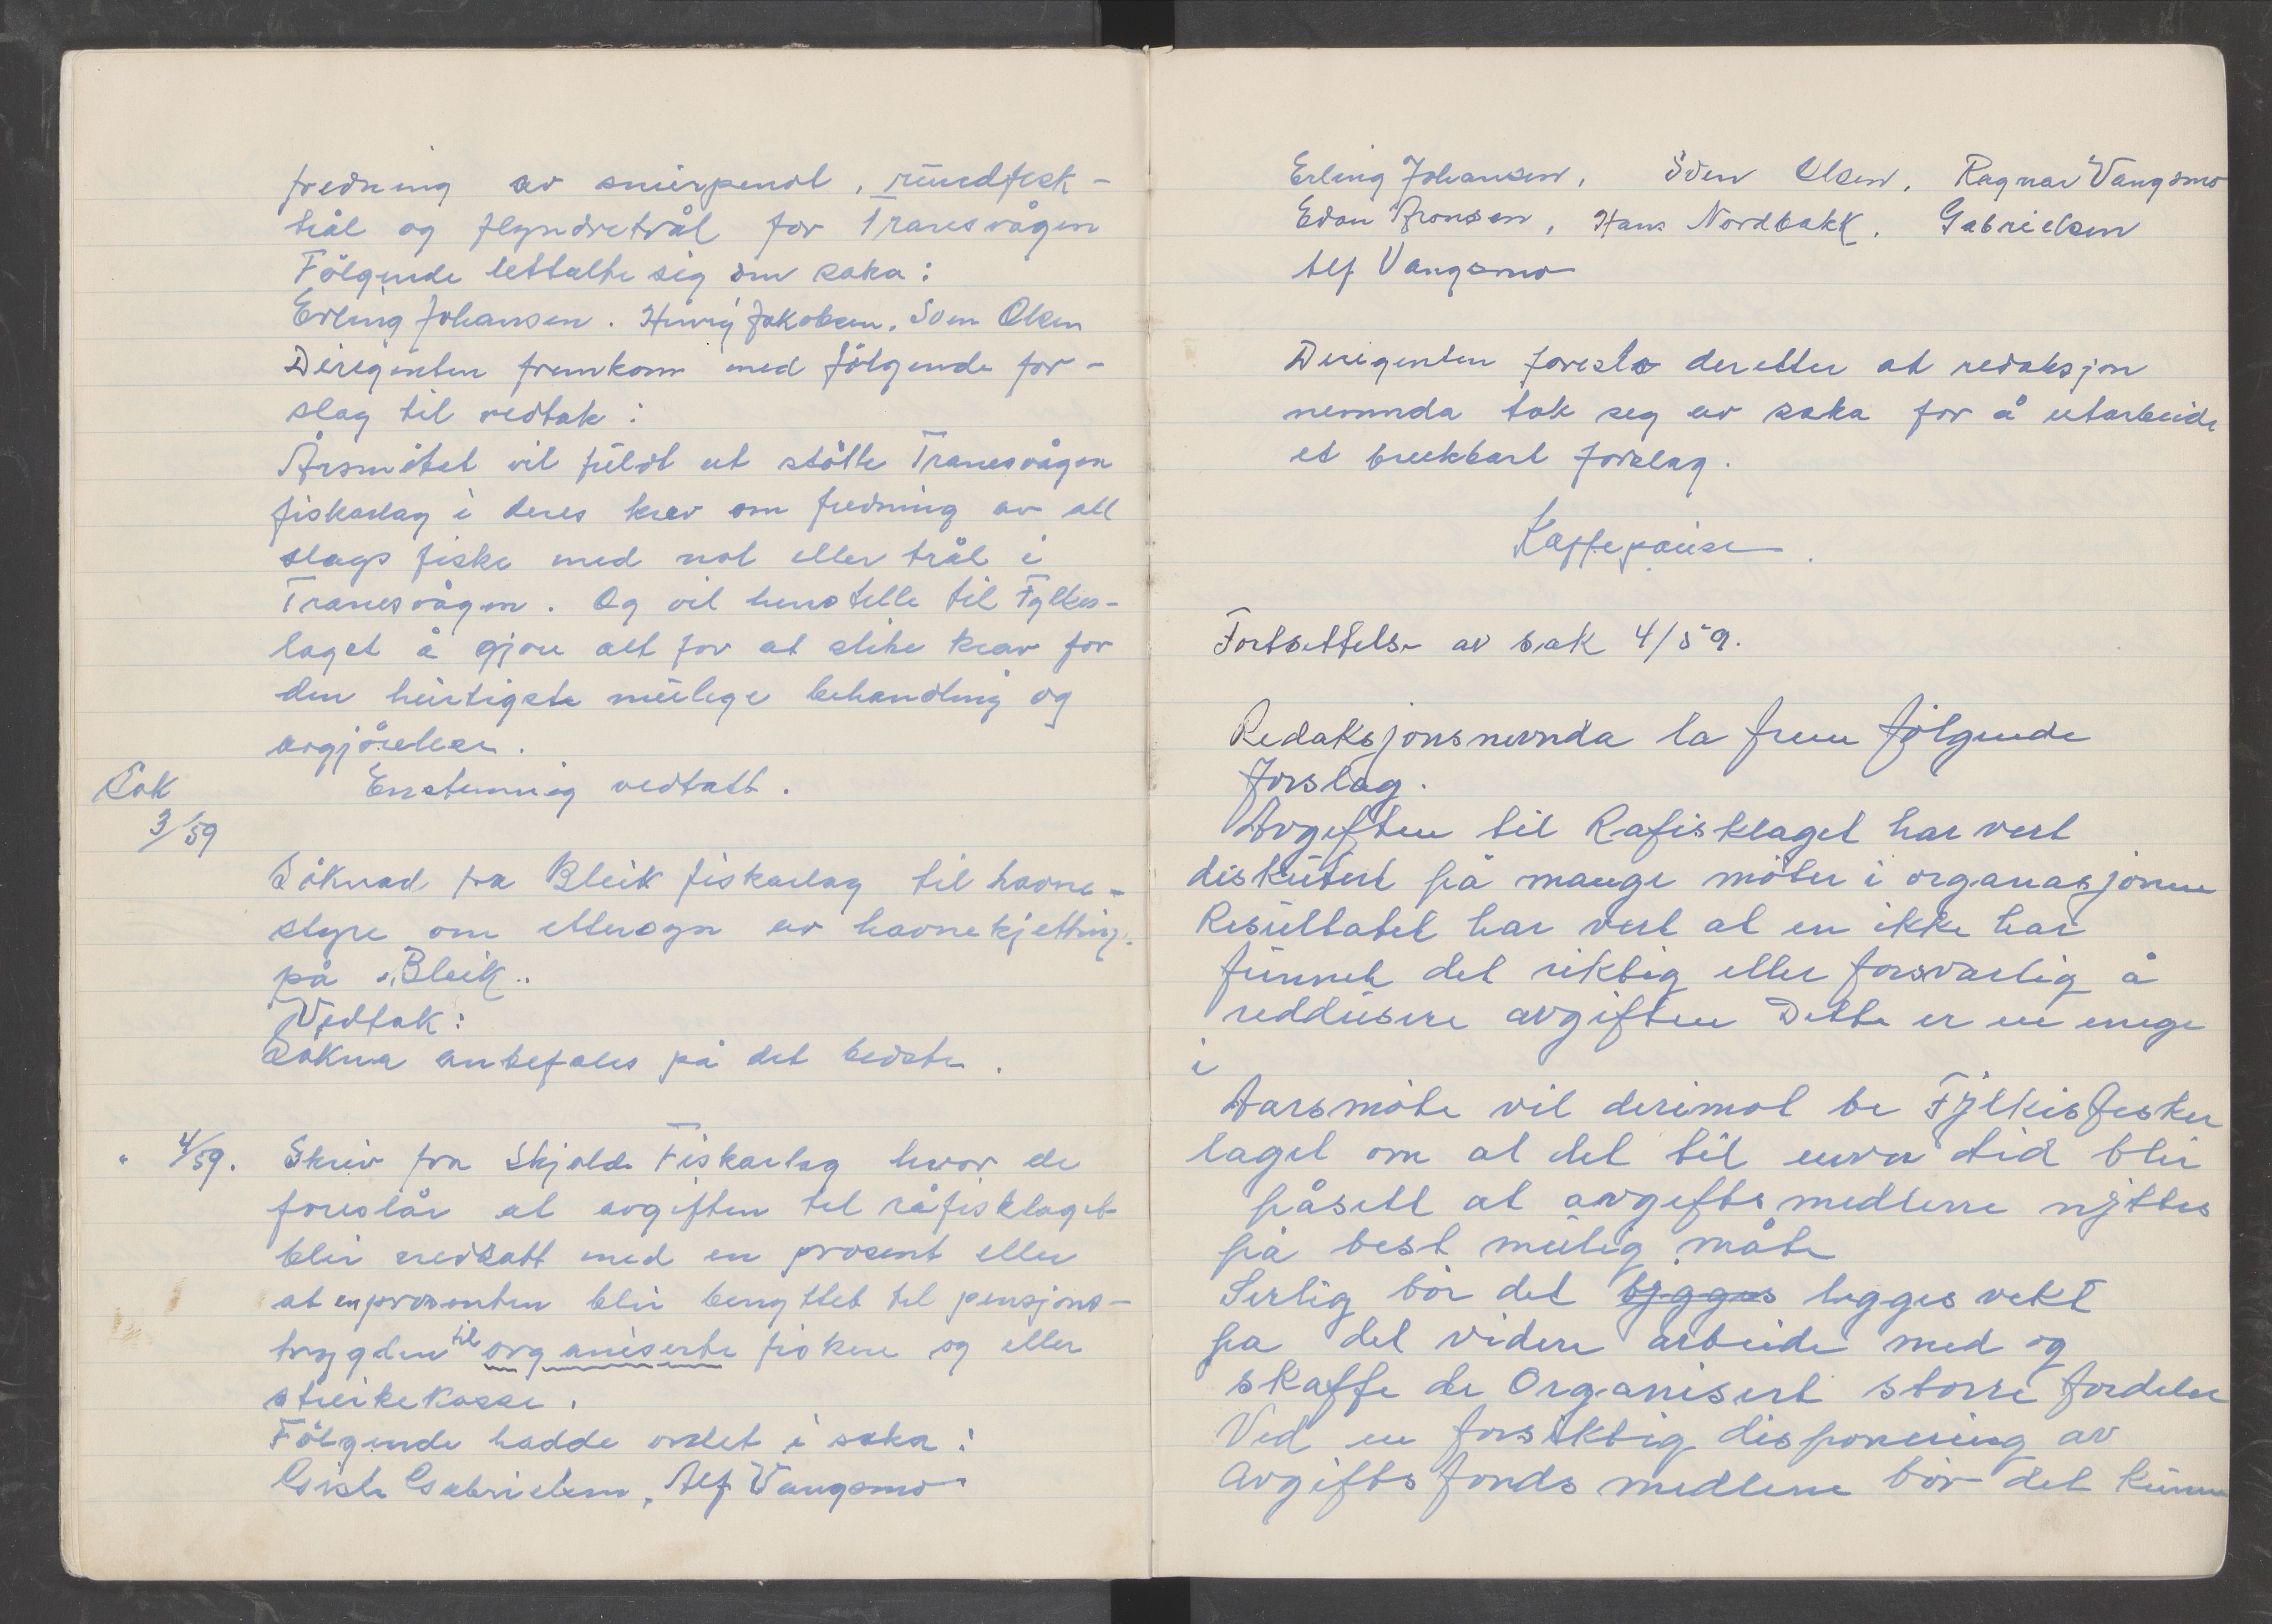 fredning av snurpenot, rundfisk-
trål og flyndretrål for Tranesvågen
Følgende uttalte sig om saka:
Erling Johansen. Henry Jakobsen. Sven Olsen
Dirigenten fremkom med følgende for-
slag til vedtak:
Årsmøtet vil fuldt ut støtte Tranesvågen
fiskarlag i deres krav om fredning av all
slags fiske med not eller trål i
Tranesvågen. Og vil henstille til Fylkes-
laget å gjøre alt for at slike krav for
den hurtigste mulege behandling og
avgjørelser.
Sak Enstemmig vedtatt.
3/59
Søknad fra Bleik fiskarlag til havne-
styre om ettersyn av havnekjetting.
på "Bleik"
Vedtak:
Søkna anbefales på det bedste.
" 4/59. Skriv fra Skjolde Fiskarlag hvor de
foreslår at avgiften til råfisklaget
blir nedsatt med en prosent eller
at en prosenten blir benyttet til pensjons-
trygden til organiserte fiskere og eller
streikekasse.
Følgende hadde ordet i saka:
Gisle Gabrielsen, Alf Vangsmo
Erling Johansen, Sven Olsen, Ragnar Vangsmo
Edon Aronsen, Hans Nordbakk, Gabrielsen
Alf Vangsmo
Dirigenten foreslo deretter at redaksjon
nemnda tok seg av saka for å utarbeide
et brukbart forslag.
Kaffepause.
Fortsettelse av sak 4/59.
Redaksjonsnevnda la frem følgende
forslag.
Avgiften til Rafisklaget har vert
diskutert på mange møter i organasjonen
Resultatet har vert at en ikke har
funnet det riktig eller forsvarlig å
reddusere avgiften Dette er en enige
i
Aarsmøte vil derimot be Fylkisfisker
laget om at det til enver tid blir
påsett at avgiftsmedlerne nyttes
på best mulig måte
Serlig bør det bygges legges vekt
pa det videre arbeide med og
skaffe de Organisert større fordeler
Ved en forsiktig disponering av
Avgiftsfondsmedlene bør det kunne